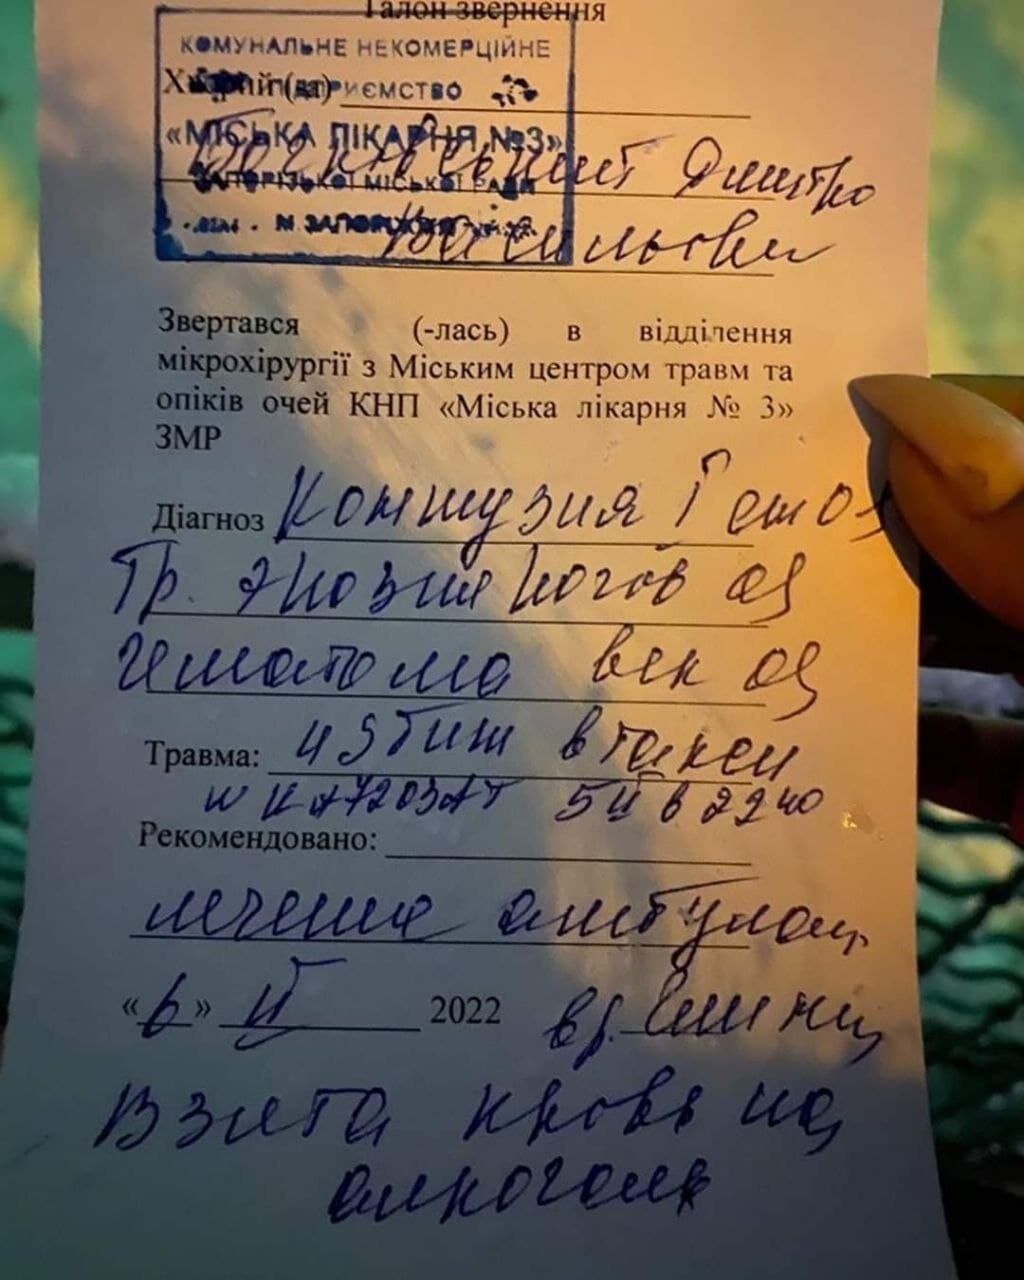 Талон звернення
КОМУНАЛЬНЕ НЕКОМЕРЦІЙНЕ
Хворий (а)
ПІДПРИЄМСТВО
«МІСЬКА ЛІКАРНЯ №3»
Дмитро
ЗАПОРІЗЬКОЇ МІСЬКОЇ РАДИ
м. ЗАПОРІЖЖЯ
Васильови
Звертався (-лась) в відділення
мікрохірургії з Міським центром травм та
опіків очей КНП «Міська лікарня № 3»
ЗМР
Діагноз Контузия I
Тр. эрозия
Гематома век
Травма: избит в такси
5 II в 22 40
Рекомендовано:
лечение амбулат
«6» II 2022 вр.
Взята кровь на
алкоголь